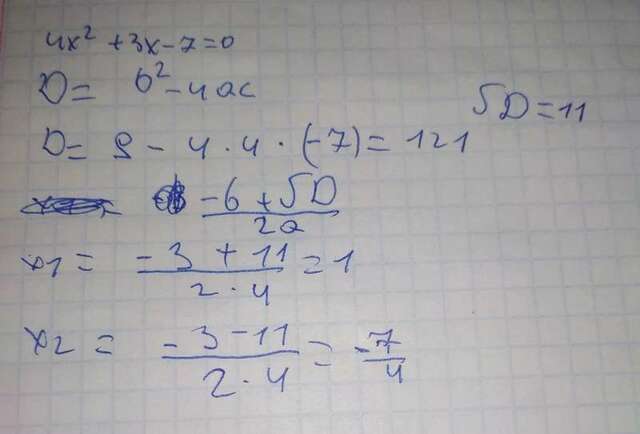 4x² + 3x - 7 = 0
D = b² - 4ac
D = 9 - 4 · 4 · (-7) = 121 √D = 11
-b + √D / 2a
x1 = -3 + 11 / 2 · 4 = 1
x2 = -3 - 11 / 2 · 4 = -7/4